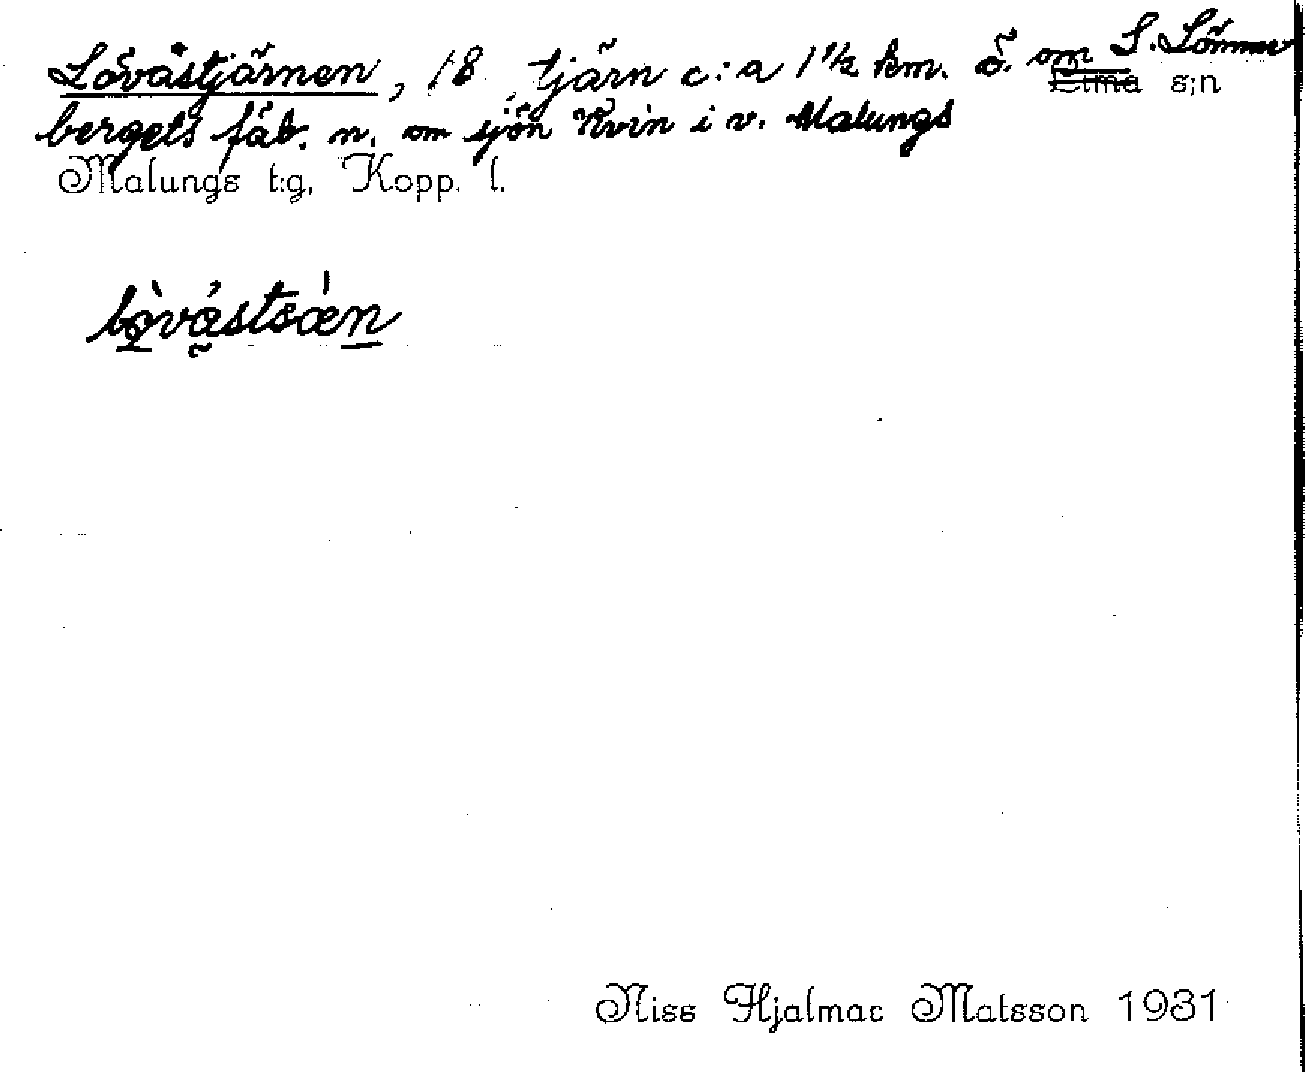 Lövåstjärnen, 18, tjärn c:a 1 1/2 km. ö. om S. Lömmer
Lima s;n
bergets fäb. n. om sjön Kvin i v. Malungs
Malungs t:g, Kopp. l.
Niss Hjalmar Matsson 1931